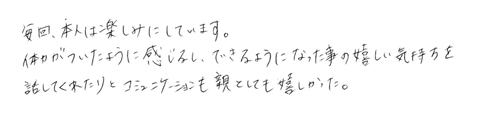 毎回、本人は楽しみにしています。
体力がついたように感じるし、できるようになった事の嬉しい気持ちを
話してくれたりとコミュニケーションも親としても嬉しかった。